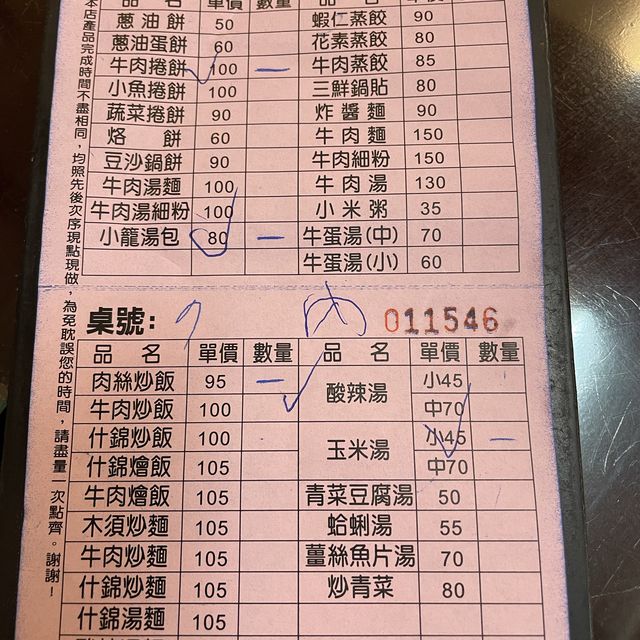 本店產品完成時間不盡相同,均照先後次序現點現做,為免耽誤您的時間,請盡量一次點齊。謝謝!
品 名 單價 數量 品 名 單價 數量
蔥油餅 50 蝦仁蒸餃 90
蔥油蛋餅 60 花素蒸餃 80
牛肉捲餅 100 一 牛肉蒸餃 85
小魚捲餅 100 三鮮鍋貼 80
蔬菜捲餅 90 炸醬麵 90
烙 餅 60 牛肉麵 150
豆沙鍋餅 90 牛肉細粉 150
牛肉湯麵 100 牛肉湯 130
牛肉湯細粉 100 小米粥 35
小籠湯包 80 一 牛蛋湯(中) 70
牛蛋湯(小) 60
桌號: 內 011546
品 名 單價 數量 品 名 單價 數量
肉絲炒飯 95 一 酸辣湯 小45
牛肉炒飯 100 中70
什錦炒飯 100 玉米湯 小45 一
什錦燴飯 105 中70
牛肉燴飯 105 青菜豆腐湯 50
木須炒麵 105 蛤蜊湯 55
牛肉炒麵 105 薑絲魚片湯 70
什錦炒麵 105 炒青菜 80
什錦湯麵 105